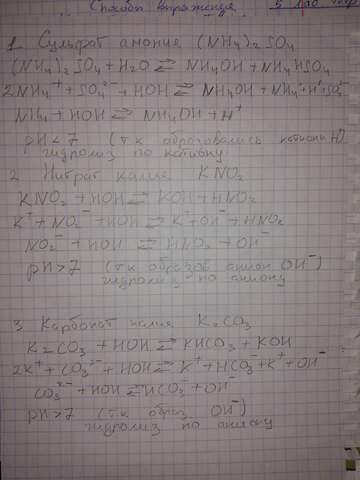 Способы выражения 5 лаб
1. Сульфат амония (NH4)2 SO4
(NH4)2 SO4 + H2O ⇄ NH4OH + NH4HSO4
2NH4⁺ + SO4²⁻ + HOH ⇄ NH4OH + NH4⁺ + H⁺ + SO4²⁻
NH4 + HOH ⇄ NH4OH + H⁺
pH < 7 (т.к образовались катионы H)
гидролиз по катиону
2 Нитрат калия KNO2
KNO2 + HOH ⇄ KOH + HNO2
K⁺ + NO2⁻ + HOH ⇄ K⁺ + OH⁻ + HNO2
NO2⁻ + HOH ⇄ HNO2 + OH⁻
pH > 7 (т.к образов анион OH⁻)
гидролиз по аниону
3 Карбонат калия K2CO3
K2CO3 + HOH ⇄ KHCO3 + KOH
2K⁺ + CO3²⁻ + HOH ⇄ K⁺ + HCO3⁻ + K⁺ + OH⁻
CO3²⁻ + HOH ⇄ HCO3⁻ + OH⁻
pH > 7 (т.к образ OH⁻)
гидролиз по аниону